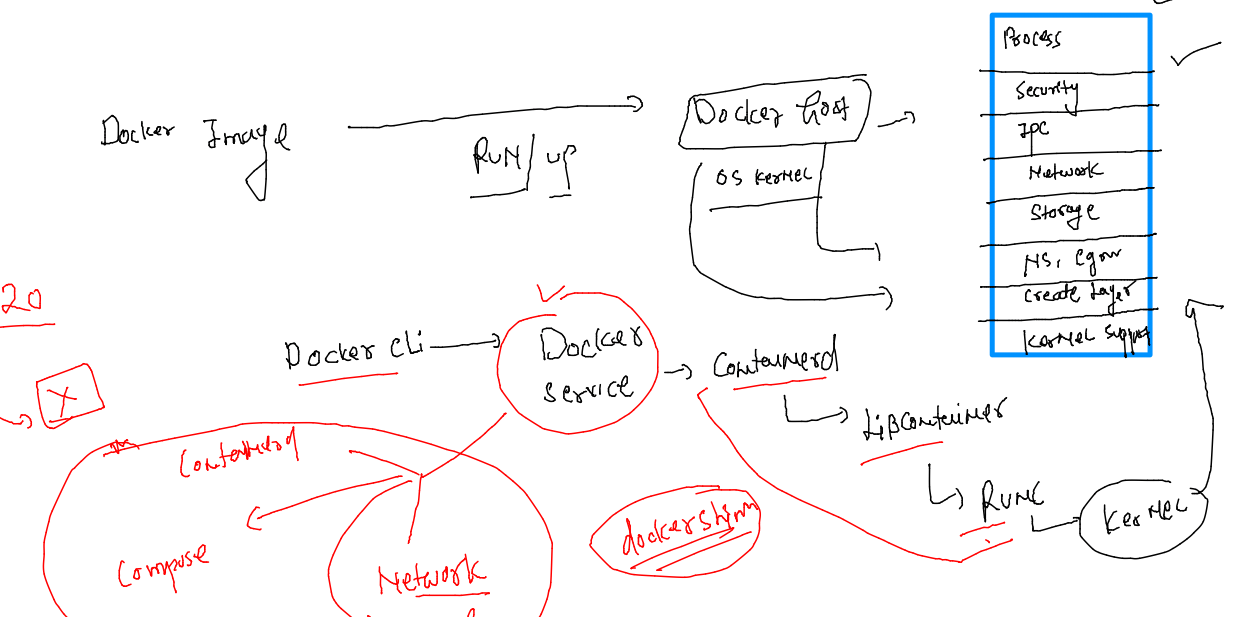 Docker Image
RUN/ up
Docker host
OS KERNEL
Process
Security
IPC
Network
Storage
NS, Cgrou
Create Layer
KERNEL Support
20
X
Docker cli
Docker
service
Containerd
Libcontainer
RUNC
KERNEL
Containerd
Compose
Network
dockershim